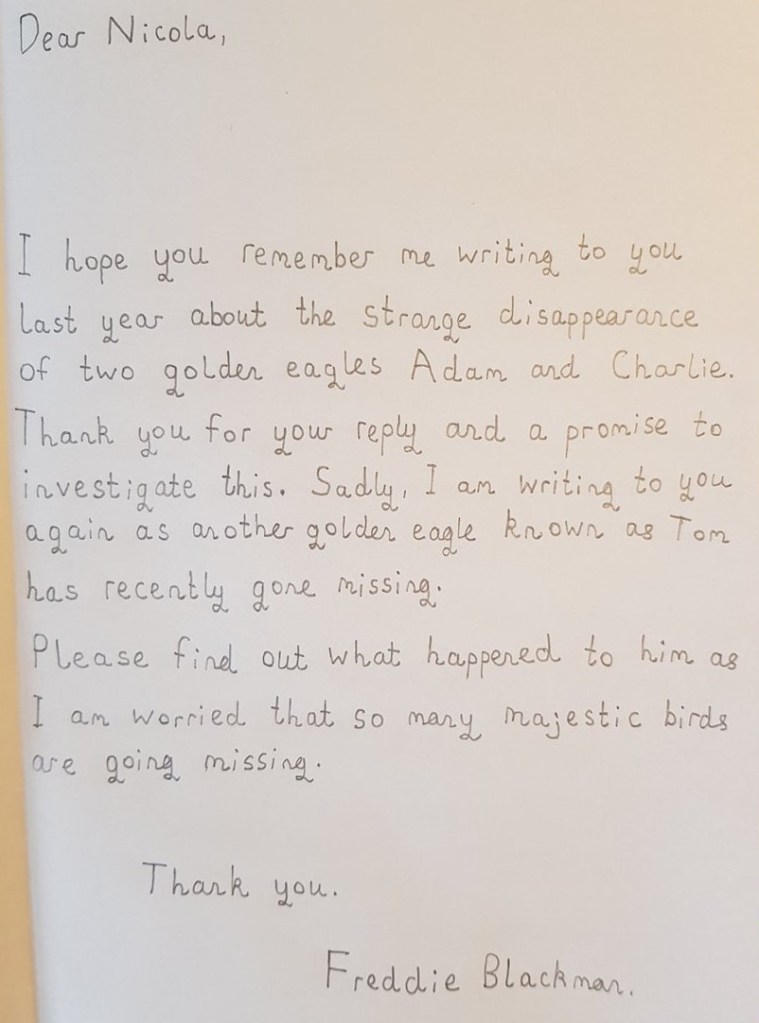 Dear Nicola,
I hope you remember me writing to you
last year about the strange disappearance
of two golden eagles Adam and Charlie.
Thank you for your reply and a promise to
investigate this. Sadly, I am writing to you
again as another golden eagle known as Tom
has recently gone missing.
Please find out what happened to him as
I am worried that so many majestic birds
are going missing.
Thank you.
Freddie Blackman.